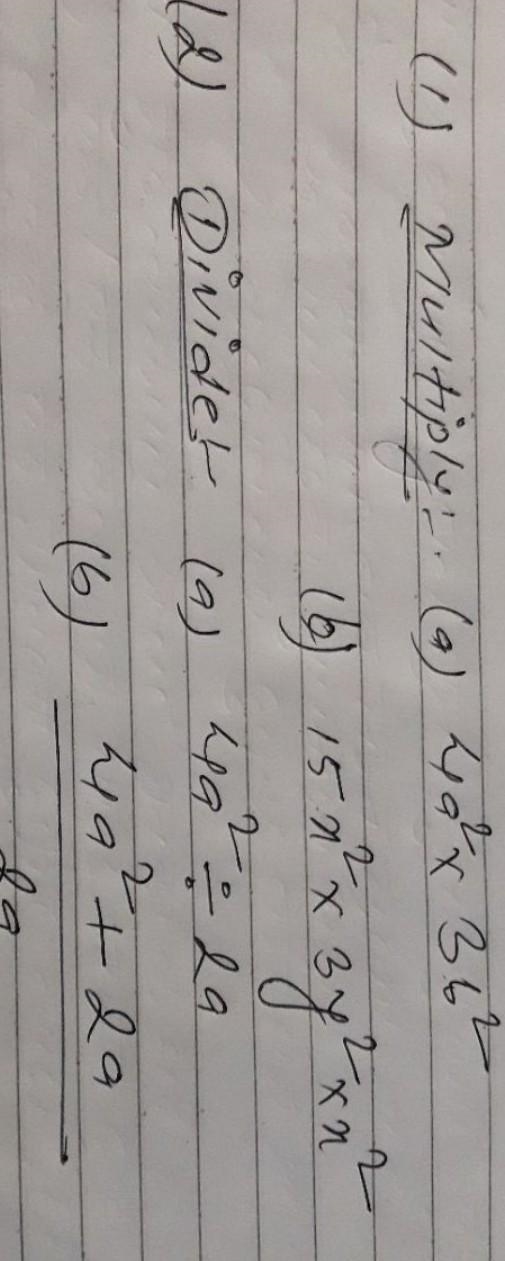 (1) Multiply:- (a) 4a² × 3b²
(b) 15x² × 3y² × x²
(2) Divide:- (a) 4a² ÷ 2a
(b) 4a² + 2a
2a